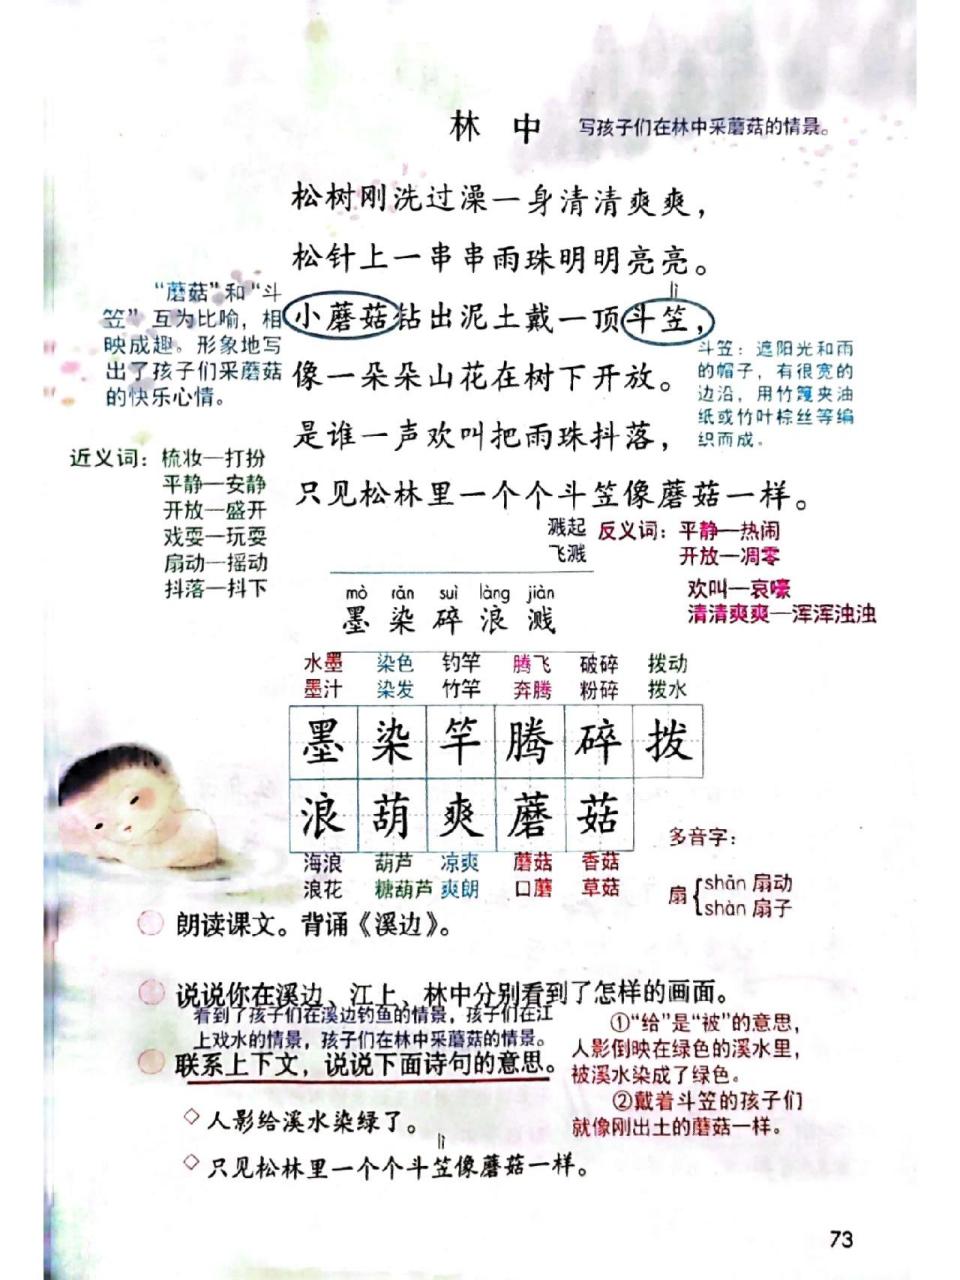 林 中 写孩子们在林中采蘑菇的情景。
松树刚洗过澡一身清清爽爽，
松针上一串串雨珠明明亮亮。
lì
小蘑菇钻出泥土戴一顶斗笠，
像一朵朵山花在树下开放。
是谁一声欢叫把雨珠抖落，
只见松林里一个个斗笠像蘑菇一样。
“蘑菇”和“斗
笠”互为比喻，相
映成趣。形象地写
出了孩子们采蘑菇
的快乐心情。
斗笠：遮阳光和雨
的帽子，有很宽的
边沿，用竹篾夹油
纸或竹叶棕丝等编
织而成。
近义词：梳妆—打扮
平静—安静
开放—盛开
戏耍—玩耍
扇动—摇动
抖落—抖下
溅起
飞溅
反义词：平静—热闹
开放—凋零
欢叫—哀嚎
清清爽爽—浑浑浊浊
mò rǎn suì làng jiàn
墨 染 碎 浪 溅
水墨 染色 钓竿 腾飞 破碎 拨动
墨汁 染发 竹竿 奔腾 粉碎 拨水
墨 染 竿 腾 碎 拨
浪 葫 爽 蘑 菇
海浪 葫芦 凉爽 蘑菇 香菇
浪花 糖葫芦 爽朗 口蘑 草菇
多音字：
扇 { shān 扇动
shàn 扇子
朗读课文。背诵《溪边》。
说说你在溪边、江上、林中分别看到了怎样的画面。
看到了孩子们在溪边钓鱼的情景，孩子们在江
上戏水的情景，孩子们在林中采蘑菇的情景。
联系上下文，说说下面诗句的意思。
◇ 人影给溪水染绿了。
lì
◇ 只见松林里一个个斗笠像蘑菇一样。
①“给”是“被”的意思，
人影倒映在绿色的溪水里，
被溪水染成了绿色。
②戴着斗笠的孩子们
就像刚出土的蘑菇一样。
73